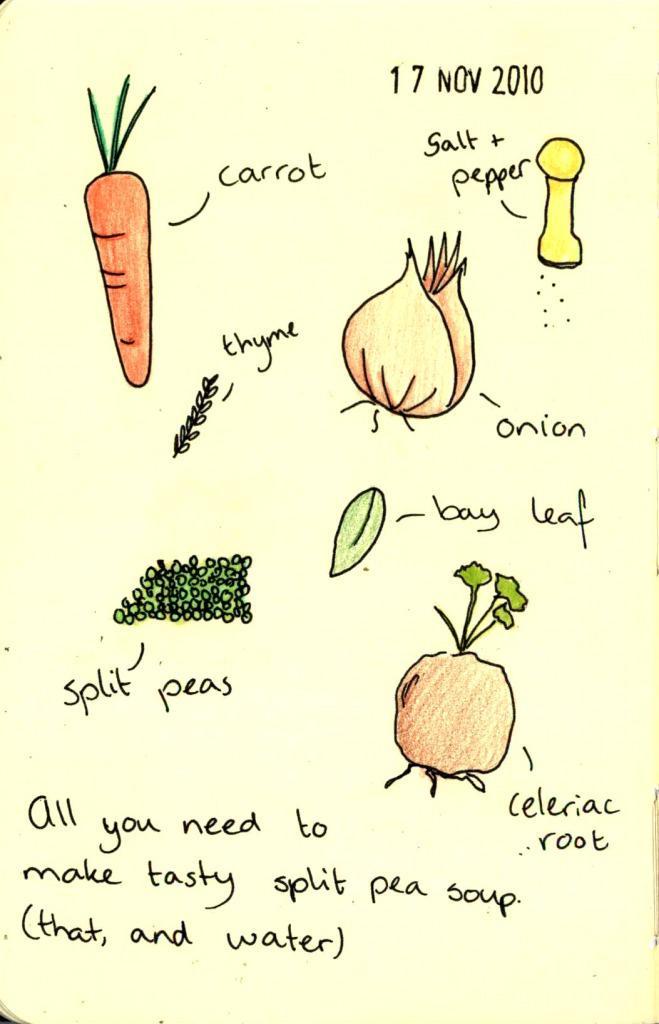 17 NOV 2010
Salt +
pepper
carrot
thyme
onion
bay leaf
split peas
celeriac
root
All you need to
make tasty split pea soup.
(that, and water)